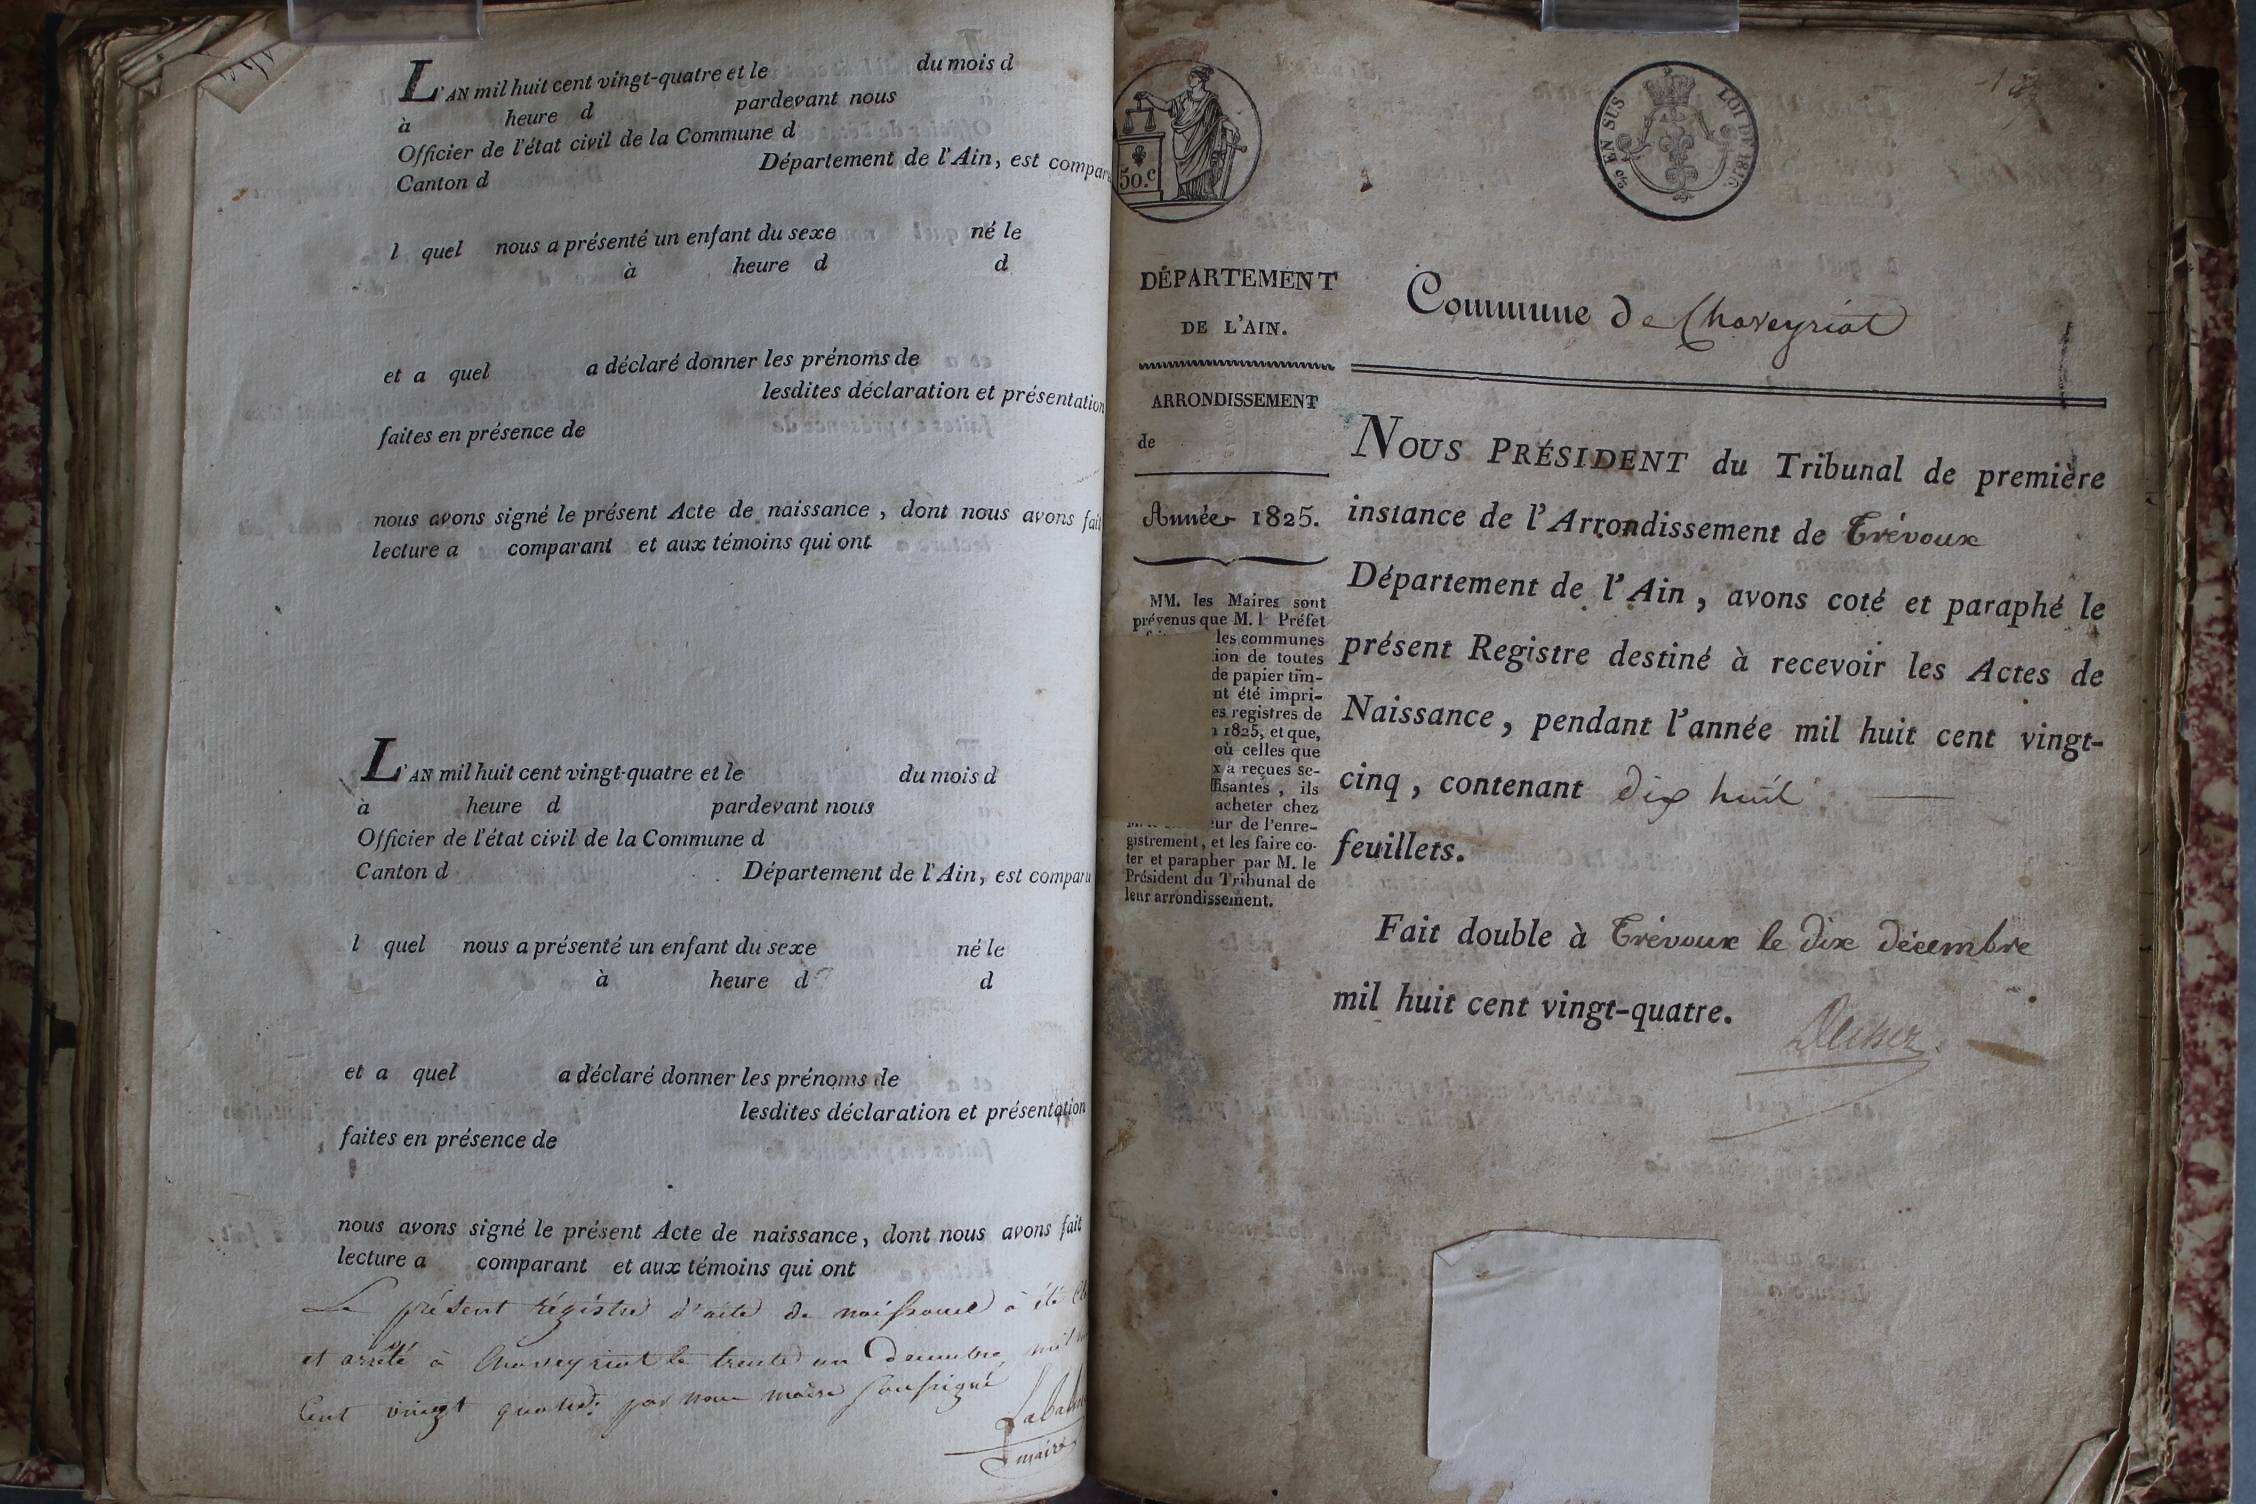 L'AN mil huit cent vingt-quatre et le du mois d
à heure d pardevant nous
Officier de l'état civil de la Commune d
Canton d Département de l'Ain, est comparu
l quel nous a présenté un enfant du sexe né le
à heure d d
et a quel a déclaré donner les prénoms de
lesdites déclaration et présentation
faites en présence de
nous avons signé le présent Acte de naissance, dont nous avons fait
lecture a comparant et aux témoins qui ont
L'AN mil huit cent vingt-quatre et le du mois d
à heure d pardevant nous
Officier de l'état civil de la Commune d
Canton d Département de l'Ain, est comparu
l quel nous a présenté un enfant du sexe né le
à heure d d
et a quel a déclaré donner les prénoms de
lesdites déclaration et présentation
faites en présence de
nous avons signé le présent Acte de naissance, dont nous avons fait
lecture a comparant et aux témoins qui ont
Le présent régistre d'acte de naissance à été
et arrêté à Chaveyriat le trente un decembre mil
Cent vingt quatre par nous maire soussigné
maire
50.c
EN SUS
LOI DE 1816.
DÉPARTEMENT
DE L'AIN.
ARRONDISSEMENT
de
Année 1825.
MM. les Maires sont
prévenus que M. l Préfet
les communes
ion de toutes
de papier tim-
nt été impri-
es registres de
1825, et que,
où celles que
x a reçues se-
ffisantes, ils
acheter chez
eur de l'enre-
gistrement, et les faire co-
ter et parapher par M. le
Président du Tribunal de
leur arrondissement.
Commune de Chaveyriat
NOUS PRÉSIDENT du Tribunal de première
instance de l'Arrondissement de Trévoux
Département de l'Ain, avons coté et paraphé le
présent Registre destiné à recevoir les Actes de
Naissance, pendant l'année mil huit cent vingt-
cinq, contenant dix huit
feuillets.
Fait double à Trévoux le dix décembre
mil huit cent vingt-quatre.